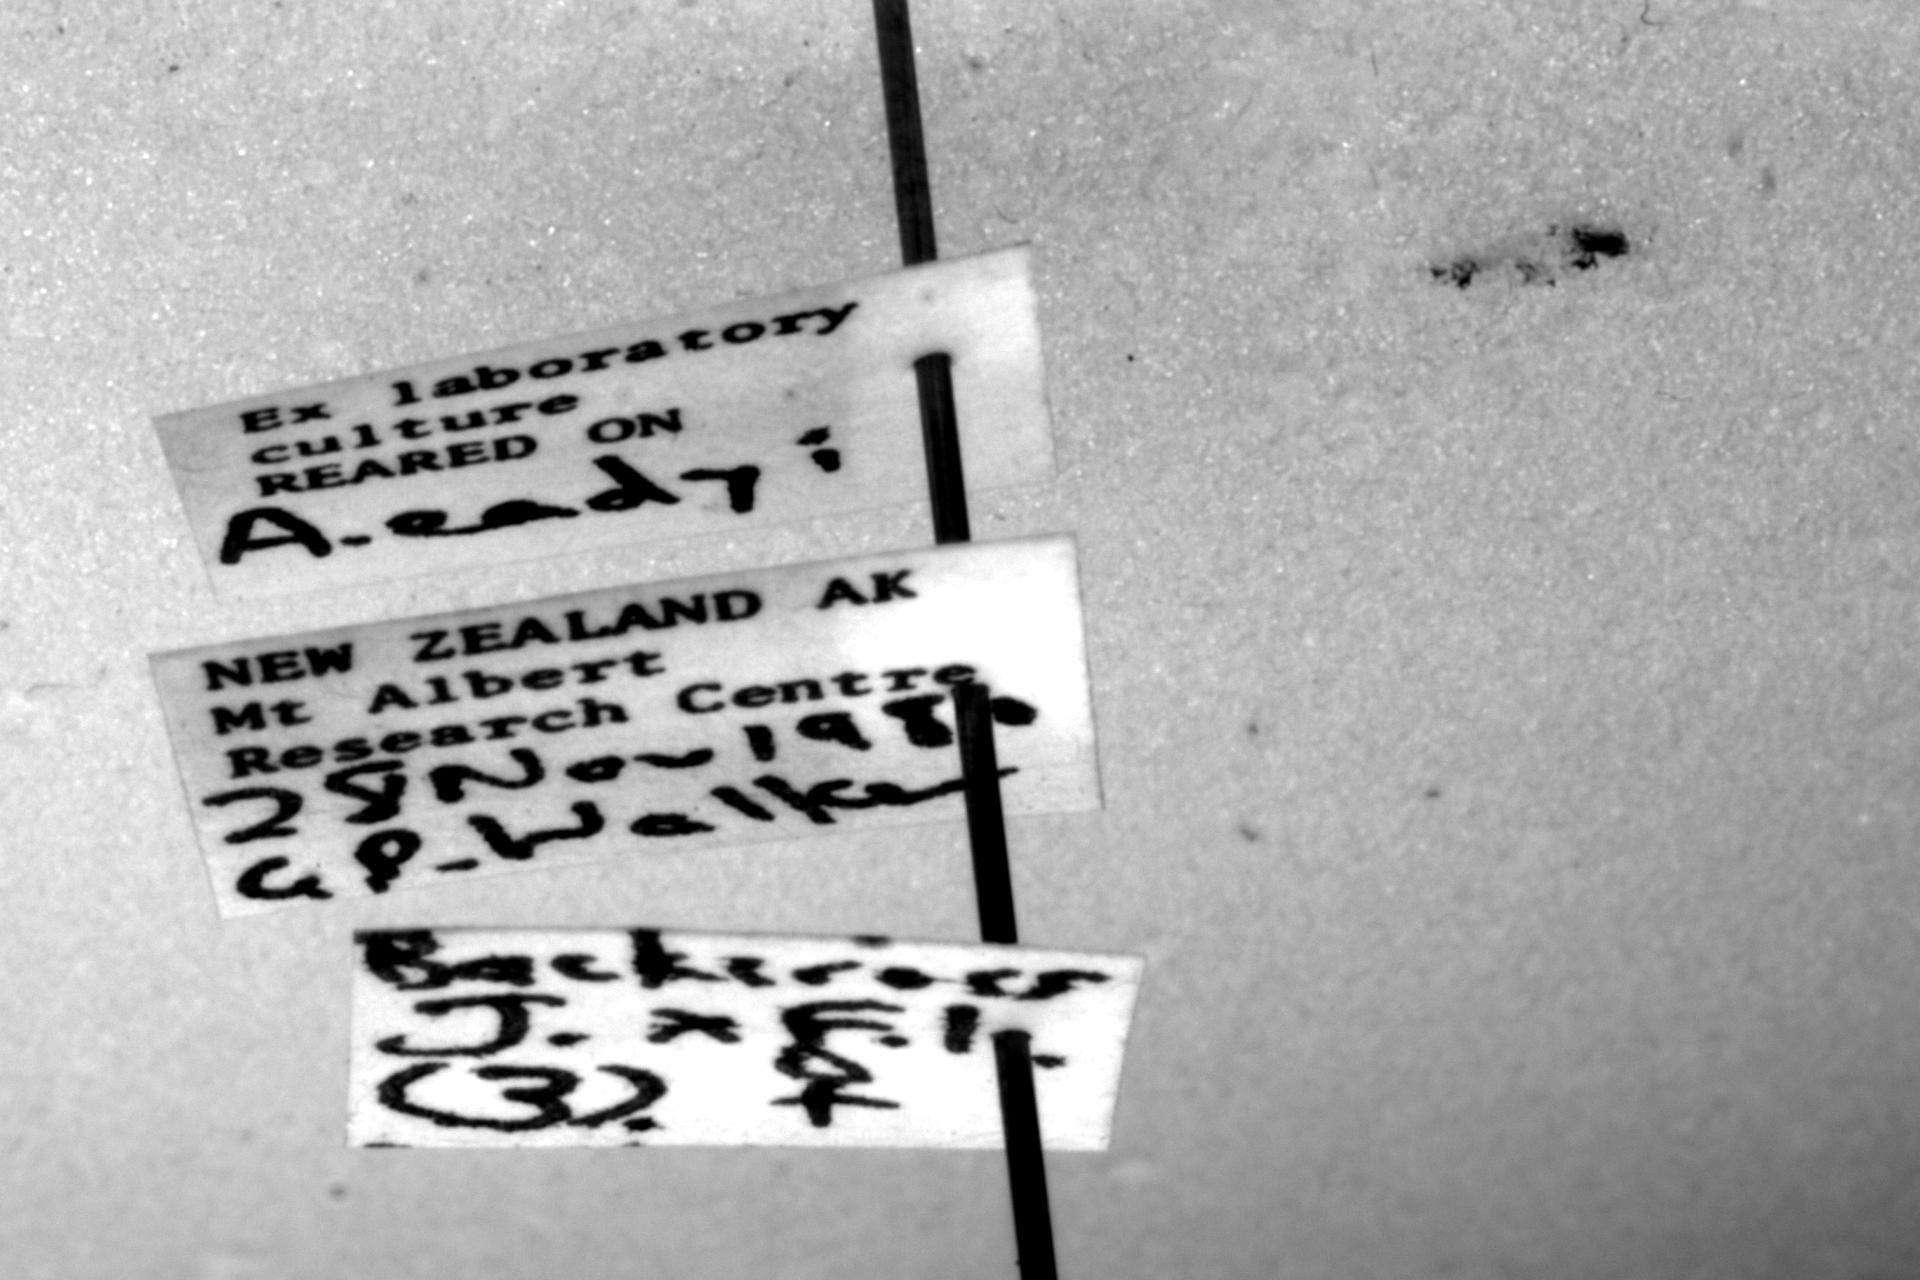 Ex laboratory
culture
REARED ON
A. eadyi
NEW ZEALAND AK
Mt Albert
Research Centre
28 Nov
G P. Walker
Backcross
J. x E1.
(3). ♀